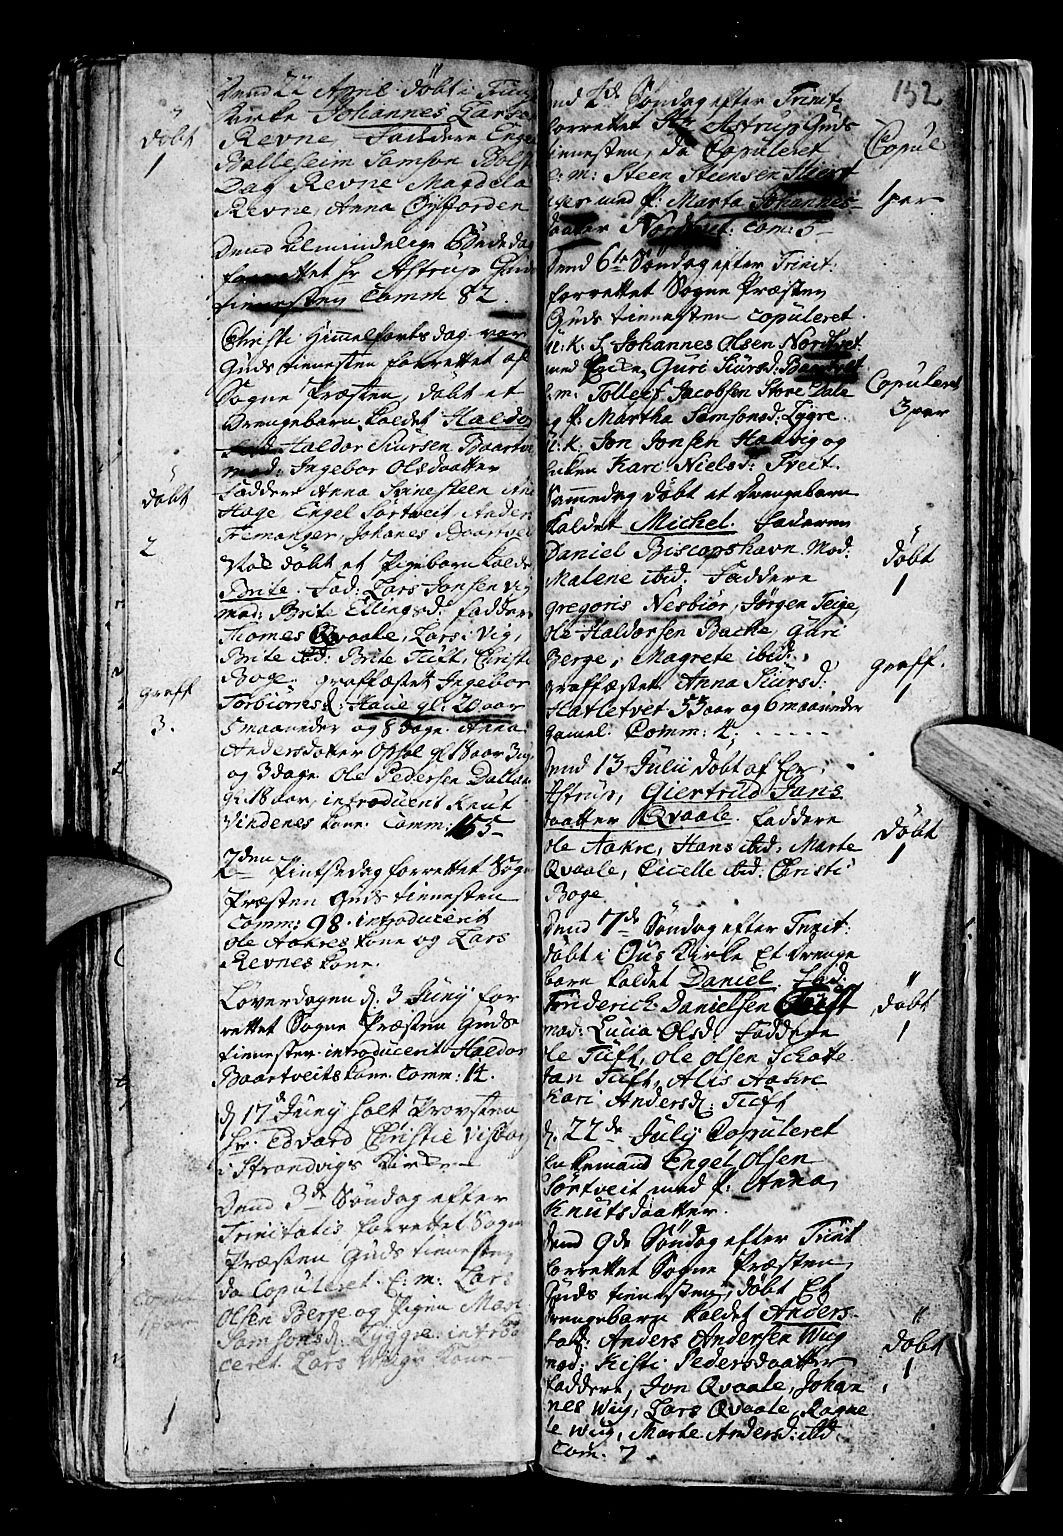 Dend 22 April döbt i Fuse
Kirke Johannes Larse
döbt
1
Revne, Faddere Engel
Balleseim Samson Bolst
Dag Revne Magdela
Revne, Anna Öyjorden
Dend Almindelige Bededag
forrettet Hr Astrup Guds
tienesten Comm 82.
Christi Himmelfarts dag var
Guds tienesten forrettet af
Sogne Præsten, döbt et
Drengebarn kaldet Haldor
Fad: Haldor Siursen Baartve
mod: Ingebor Olsdaatter
döbt
2
Faddere Anna Svinesteen Ane
Hage Engel Sörtveit Anders
Femanger, Johanes Baartvet
Nok döbt et Pigebarn kaldet
Brite. Fad: Lars Jonsen Vig
mod: Brite Ellingsd: Faddere
Thomes Qvaale, Lars: Vig,
Brite ibd: Brite Tuft, Christi
Boge. graffæstet Ingebor
graff
3.
Torbiörnsd: Haue gl. 20 aar
5 maaneder og 8 dage. Anna
Andersdater Opsal gl 18 aar 3 ug
og 3 dage Ole Pedersen Dallan
gl 18 aar, introducerit Knut
Vindenes kone. Comm: 155
2den Pintsedag forrettet Sogne
Præsten Guds tienesten
Comm: 98. introducerit
Ole Aakres kone og Lars
Revnes kone.
Löverdagen d. 3 Juny for
rettet Sogne Præsten Guds
tienesten. introducerit Haldor
Baartveits kone. Comm: 14.
d 17 Juny holt Provsten
Hr. Edvard Christie Visitas
i Strandvigs Kirke
Dend 3de Söndag efter
Trinitatis forrettet Sogne
Præsten Guds tienesten
da Copuleret. E: m: Lars
Copule
1 par
Olsen Berge og Pigen Mari
Samsonsd: Lygre. introdu
ceret Lars Wigs kone
1
132
end 4de Söndag efter Trinit:
forrettet Hr Astrup Guds
tienesten, da Copuleret
Copule
1 par
e. m: Steen Steensen
ger med p: Marta Johannis
daater Nordtvet. Com: 5
Dend 6te Söndag efter Trinit:
forrettet Sogne Præsten
Guds tienesten copuleret.
u: k: S. Johannes Olsen Nordtvet
med Guri Siursd: Baartvet
Copuleret
3 par
e. m: Tollefs Jacobsen Store Dale
og p: Martha Samsonsd: Lygre.
u: k. Jon Jonsen Hatvig og
Kari Nielsd: Tveit.
samme dag döbt et Drengebarn
kaldet Michel. Faderen
döbt
1
Daniel Biscopshavn Mod:
Malene ibid. Faddere
gregoris Nesbiör, Jörgen Teige
Ole Haldorsen Backe, Guri
Berge, Magrete ibid:
graff.
1
graffæstet Anna Siursd:
Hatletvet 53 aar og 6 maaneder
gamel. Comm: 4;
Dend 13 Julii döbt af Hr
Astrup, Giertrud Jans
döbt
1
daatter Qvaale. Faddere
Ole Aakre, Hans ibid: Marte
Qvaale, Cicelle ibd: Christi
Boge
Dend 7de Söndag efter Trinit:
döbt i Ous Kirke Et Drenge
barn kaldet Daniel Fad:
döbt
1
Friderich Danielsen Tuft
mod: Lucia Olsd. Faddere
Ole Tuft, Ole Olsen Schatte
Jan Tuft, Alis Aakre
Kari Andersd: Tuft
d. 22de July Copuleret
Enkemand Engel Olsen
Sörtveit med p: Anna
Knutsdaatter.
Dend 9de Söndag efter Trinit
forrettet Sogne Præsten
Guds tienesten, döbt Et
Drengebarn kaldet Anders.
döbt
1
Fad: Anders Andersen Wiig
mod: Kisti Pedersdaatter
Faddere, Jon Qvaale, Johan
nes Wiig, Lars Qvaale, Ragne
le Wiig, Marte Andersd: ibd.
Com: 7